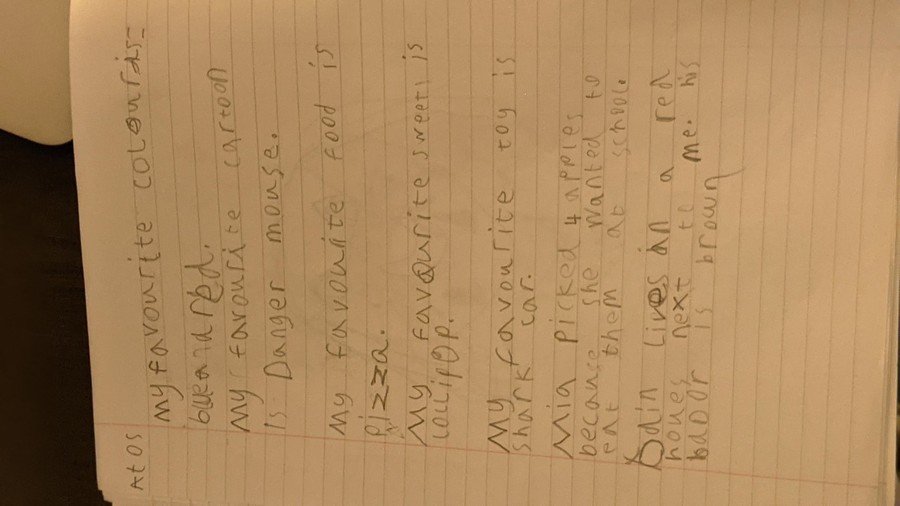 Atos
My favourite colouris
blueandred.
My favourite cartoon
is Danger mouse.
My favourite food is
pizza.
My favourite sweeti is
lollipop.
My favourite toy is
shark car.
Mia picked 4 apples
because she wanted to
eat them at schoole
Odin lives in a red
houes next to me. his
bador is brown